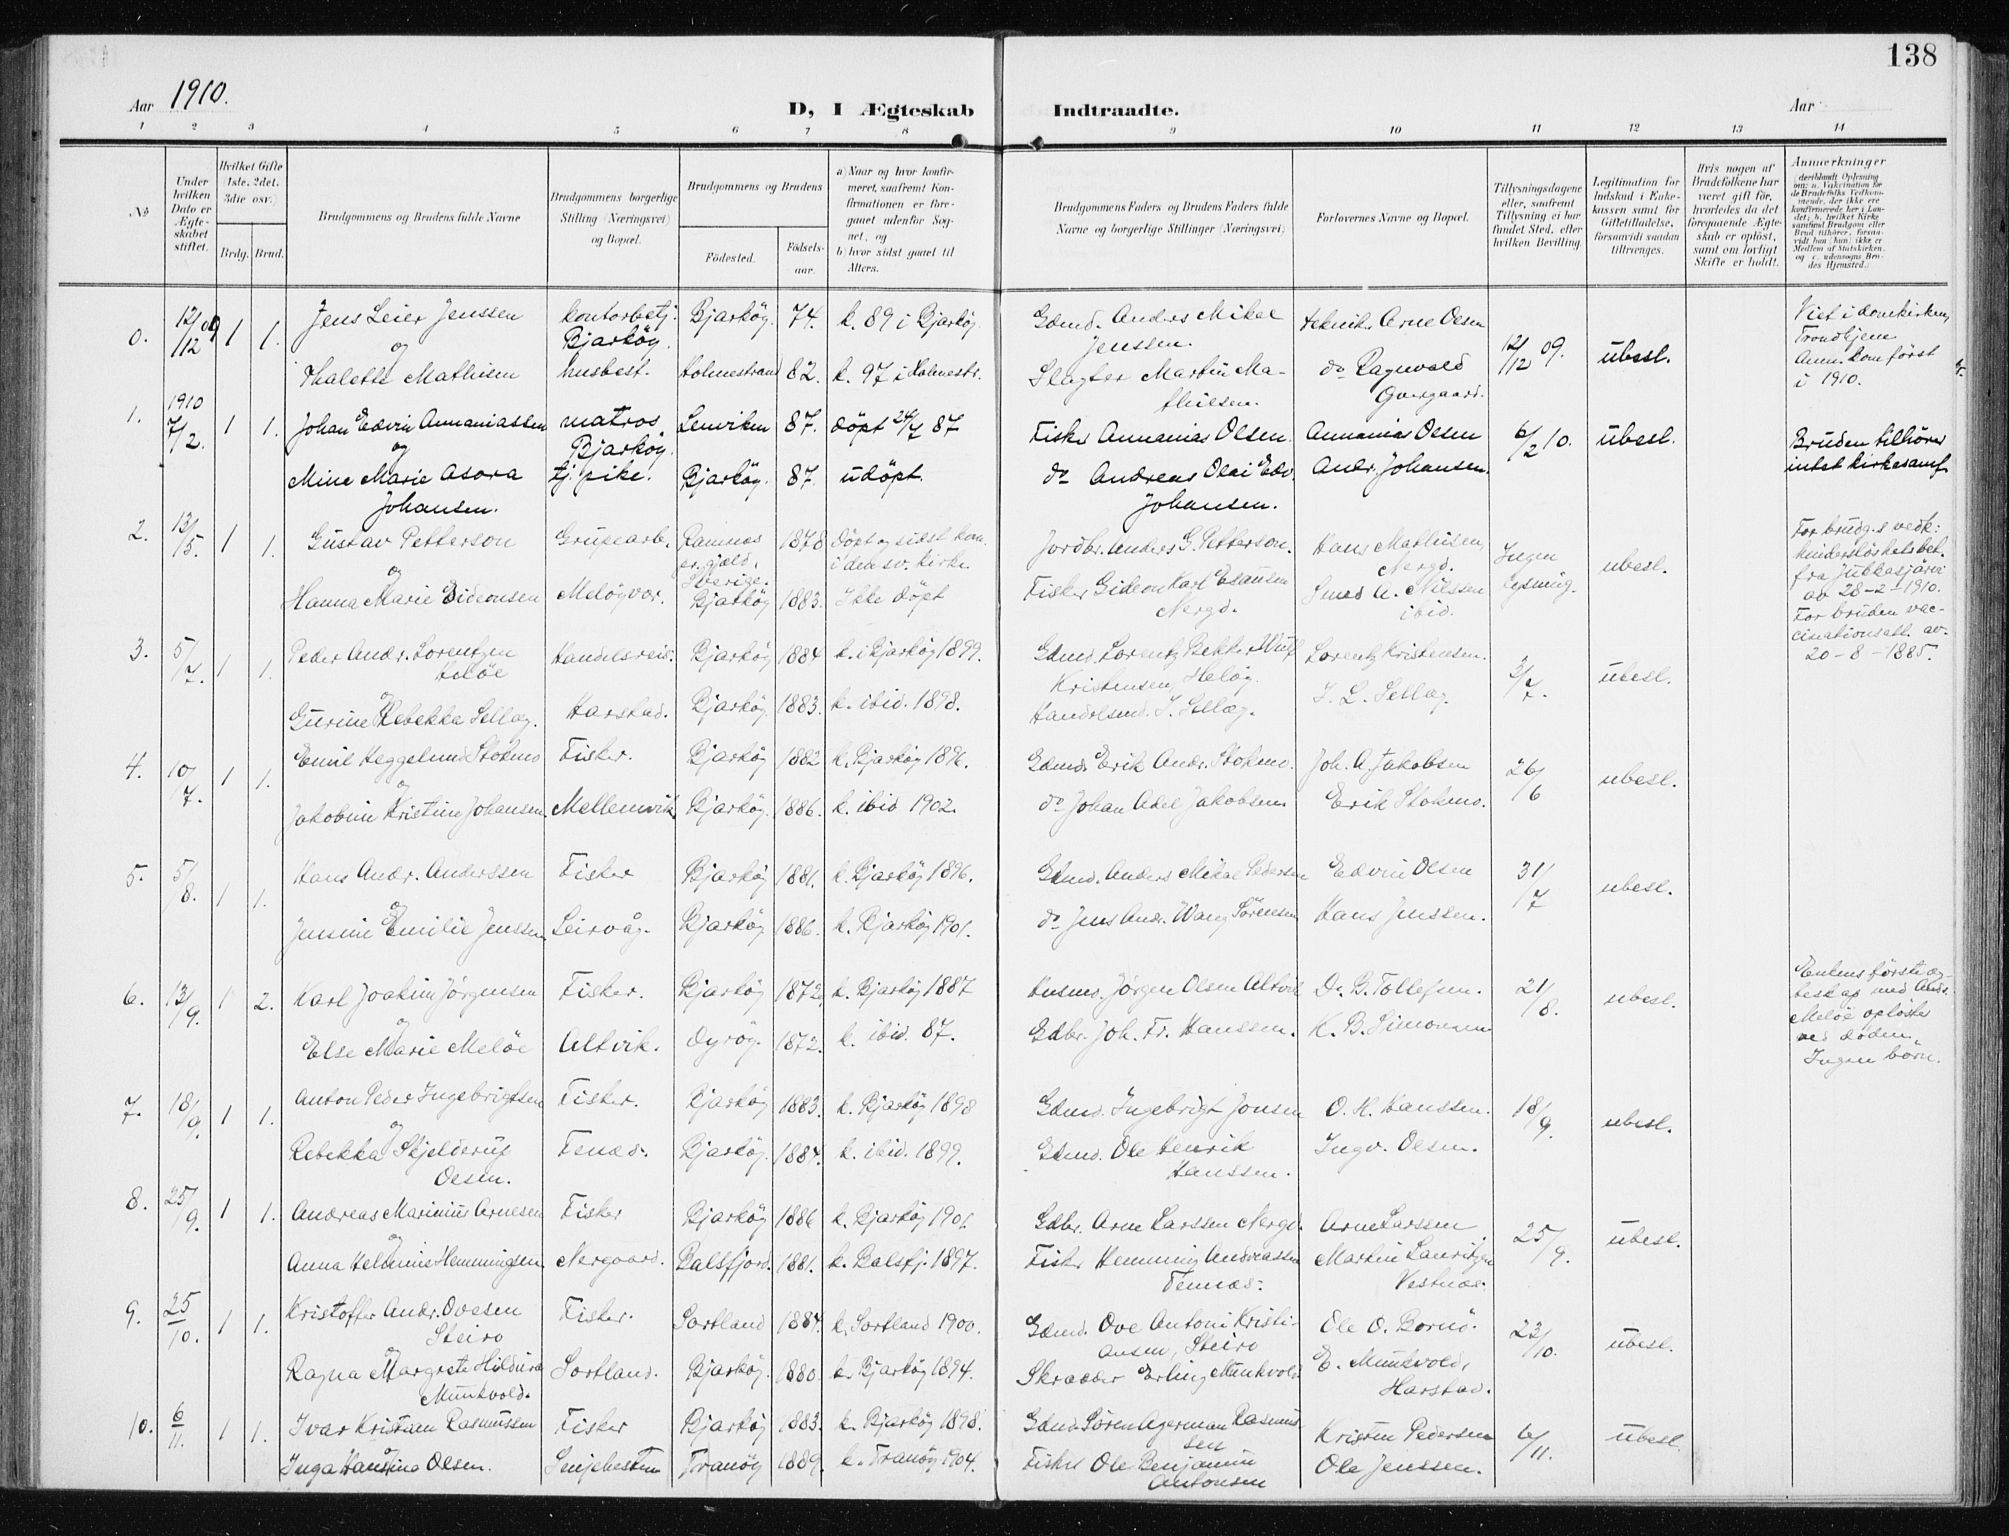 138
Aar 1910.
D, I Ægteskab Indtraadte.
Aar
1 2 3 4 5 6 7 8 9 10 11 12 13 14
No
Under hvilken Dato er Ægteskabet stiftet.
Hvilket Gifte (1ste, 2det, 3die osv.)
Brdg. Brud.
Brudgommens og Brudens fulde Navne
Brudgommens borgerlige Stilling (Næringsvei) og Bopæl.
Brudgommens og Brudens
Fødested.
Fødselsaar.
a) Naar og hvor konfirmeret, saafremt Konfirmationen er foregaaet udenfor Sognet, og
b) hvor sidst gaaet til Alters.
Brudgommens Faders og Brudens Faders fulde Navne og borgerlige Stillinger (Næringsvei)
Forlovernes Navne og Bopæl.
Tillysningsdagene eller, saafremt Tillysning ei har fundet Sted, efter hvilken Bevilling.
Legitimation for Indskud i Enkekassen samt for Giftetilladelse, forsaavidt saadan tiltrænges.
Hvis nogen af Brudefolkene har været gift før, hvorledes da det foregaaende Ægteskab er opløst, samt om lovligt Skifte er holdt.
Anmerkninger
0. 12/12 09 1 1. Jens Leier Jenssen kontorbetj. Bjarkøy. Bjarkøy. 74. k. 89 i Bjarkøy. Gdmd. Anders Mikal Jenssen. tekniker Arne Olsen 12/12 09. ubesl. Viet i domkirken, Trondhjem Anm. kom først i 1910.
og
Thalette Mathisen husbest. Holmestrand 82. k. 97 i Holmestr. Slagter Martin Mathisen. do Ragnvald
1910
1. 7/2. 1 1. Johan Edvin Annaniassen matros, Bjarkøy. Lenviken 87. døpt 24/7 87 Fisker Annanias Olsen. Annanias Olsen 6/2 10. ubesl. Bruden tilhører intet kirkesamf.
og
Mine Marie Asora Johansen. tj. pike. Bjarkøy. 87. udøpt. do Andreas Olai Edv. Johansen. Andr. Johansen.
2. 13/5. 1 1. Gustav Petterson Grubearb. Ramnäs Sverige. 1878 døpt og sidst kom. i den sv. kirke. Jordbr. Anders G. Petterson. Hans Mathisen, Nergd. Ingen lysning. ubesl. For brudg.s vedk: hinderløshetsbet. fra Jukkasjärvi av 28-2-1910. For bruden vaccinationsatt. av 20-8-1885.
og
Hanna Marie Gideonsen Meløyvær. Bjarkøy 1883. Ikke døpt Fisker Gideon Karl Esausen Nergd. A. Nilssen ibid.
3. 5/7. 1 1. Peder Andr. Lorentzen Heløe Handelsreis. Bjarkøy 1884 k. i Bjarkøy 1899. Gdmd. Lorentz Bekker Wulf Kristensen, Heløy. Lorentz Kristensen. 3/7. ubesl.
og
Gurine Rebekka Selläg. Harstad. Bjarkøy. 1883. k. ibid. 1898. Handelsmd. I. Sellæg. I. L. Sellæg.
4. 10/7. 1 1. Emil Heggelund Stokmo Fisker. Bjarkøy 1882 k. Bjarkøy 1896. Gdmd. Erik Andr. Stokmo. Joh. A. Jakobsen 26/6 ubesl.
og
Jakobine Kristine Johansen. Mellemvik Bjarkøy. 1886. k. ibid 1902. do Johan Adel Jakobsen Erik Stokmo.
5. 5/8. 1 1. Hans Andr. Anderssen Fisker Bjarkøy 1881. k. Bjarkøy 1896. Gdmd. Anders Mikal Pedersen Edvin Olsen 31/7 ubesl.
og
Jensine Emilie Jenssen Leirvåg. Bjarkøy 1886. k. Bjarkøy 1901. do Jens Andr. Wang Sørensen Hans Jenssen.
6. 13/9. 1 2. Karl Joakim Jørgensen Fisker. Bjarkøy 1872. k. Bjarkøy 1887 Husmd. Jørgen Olsen Altvik D. B. Tollefsen. 21/8. ubesl. Enkens første ægteskap med Meløe opløstes ved døden. Ingen børn.
og
Else Marie Meløe Altvik. Dyrøy. 1872. k. ibid. 87. Gdbr. Joh. Fr. Hanssen. K. B. Simonsen
7. 18/9. 1 1. Anton Peder Ingebrigtsen Fisker. Bjarkøy 1883. k. Bjarkøy 1898 Gdmd. Ingebrigt Jonsen O. H. Hanssen. 18/9. ubesl.
og
Rebekka Skjelderup Olsen. Tenæs. Bjarkøy. 1884. k. ibid. 1899. Gdmd. Ole Henrik Hanssen. Ingv. Olsen.
8. 25/9. 1 1. Andreas Marinius Arnesen Fisker Bjarkøy 1886 k. Bjarkøy 1901. Gdbr. Arne Larssen Nergd. Arne Larssen, 25/9. ubesl.
og
Anna Helmine Hemmingsen Nergaard. Balsfjord. 1881. k. Balsfj. 1897. Fisker Hemming Andreassen Tennæs. Martin Lauritzen Vestnæs.
9. 25/10. 1 1. Kristoffer Andr. Ovesen Steiro Fisker. Sortland 1884. k. Sortland 1900. Gdmd. Ove Antoni Kristiansen, Steiro Ole O. Bornø. 23/10. ubesl.
og
Ragna Margrete Hildura Munkvold. Sortland. Bjarkøy. 1880. k. Bjarkøy 1894. Skrædder Erling Munkvold E. Munkvold, Harstad.
10. 6/11. 1 1. Ivar Kristian Rasmussen Fisker Bjarkøy 1883. k. Bjarkøy 1898. Gdmd. Søren Agerman Rasmussen Kristen Pedersen 6/11. ubesl.
og
Inga Hansina Olsen. Senjehesten Tranøy 1889. k. Tranøy 1904. Fisker Ole Benjamin Antonsen Ole Jenssen.